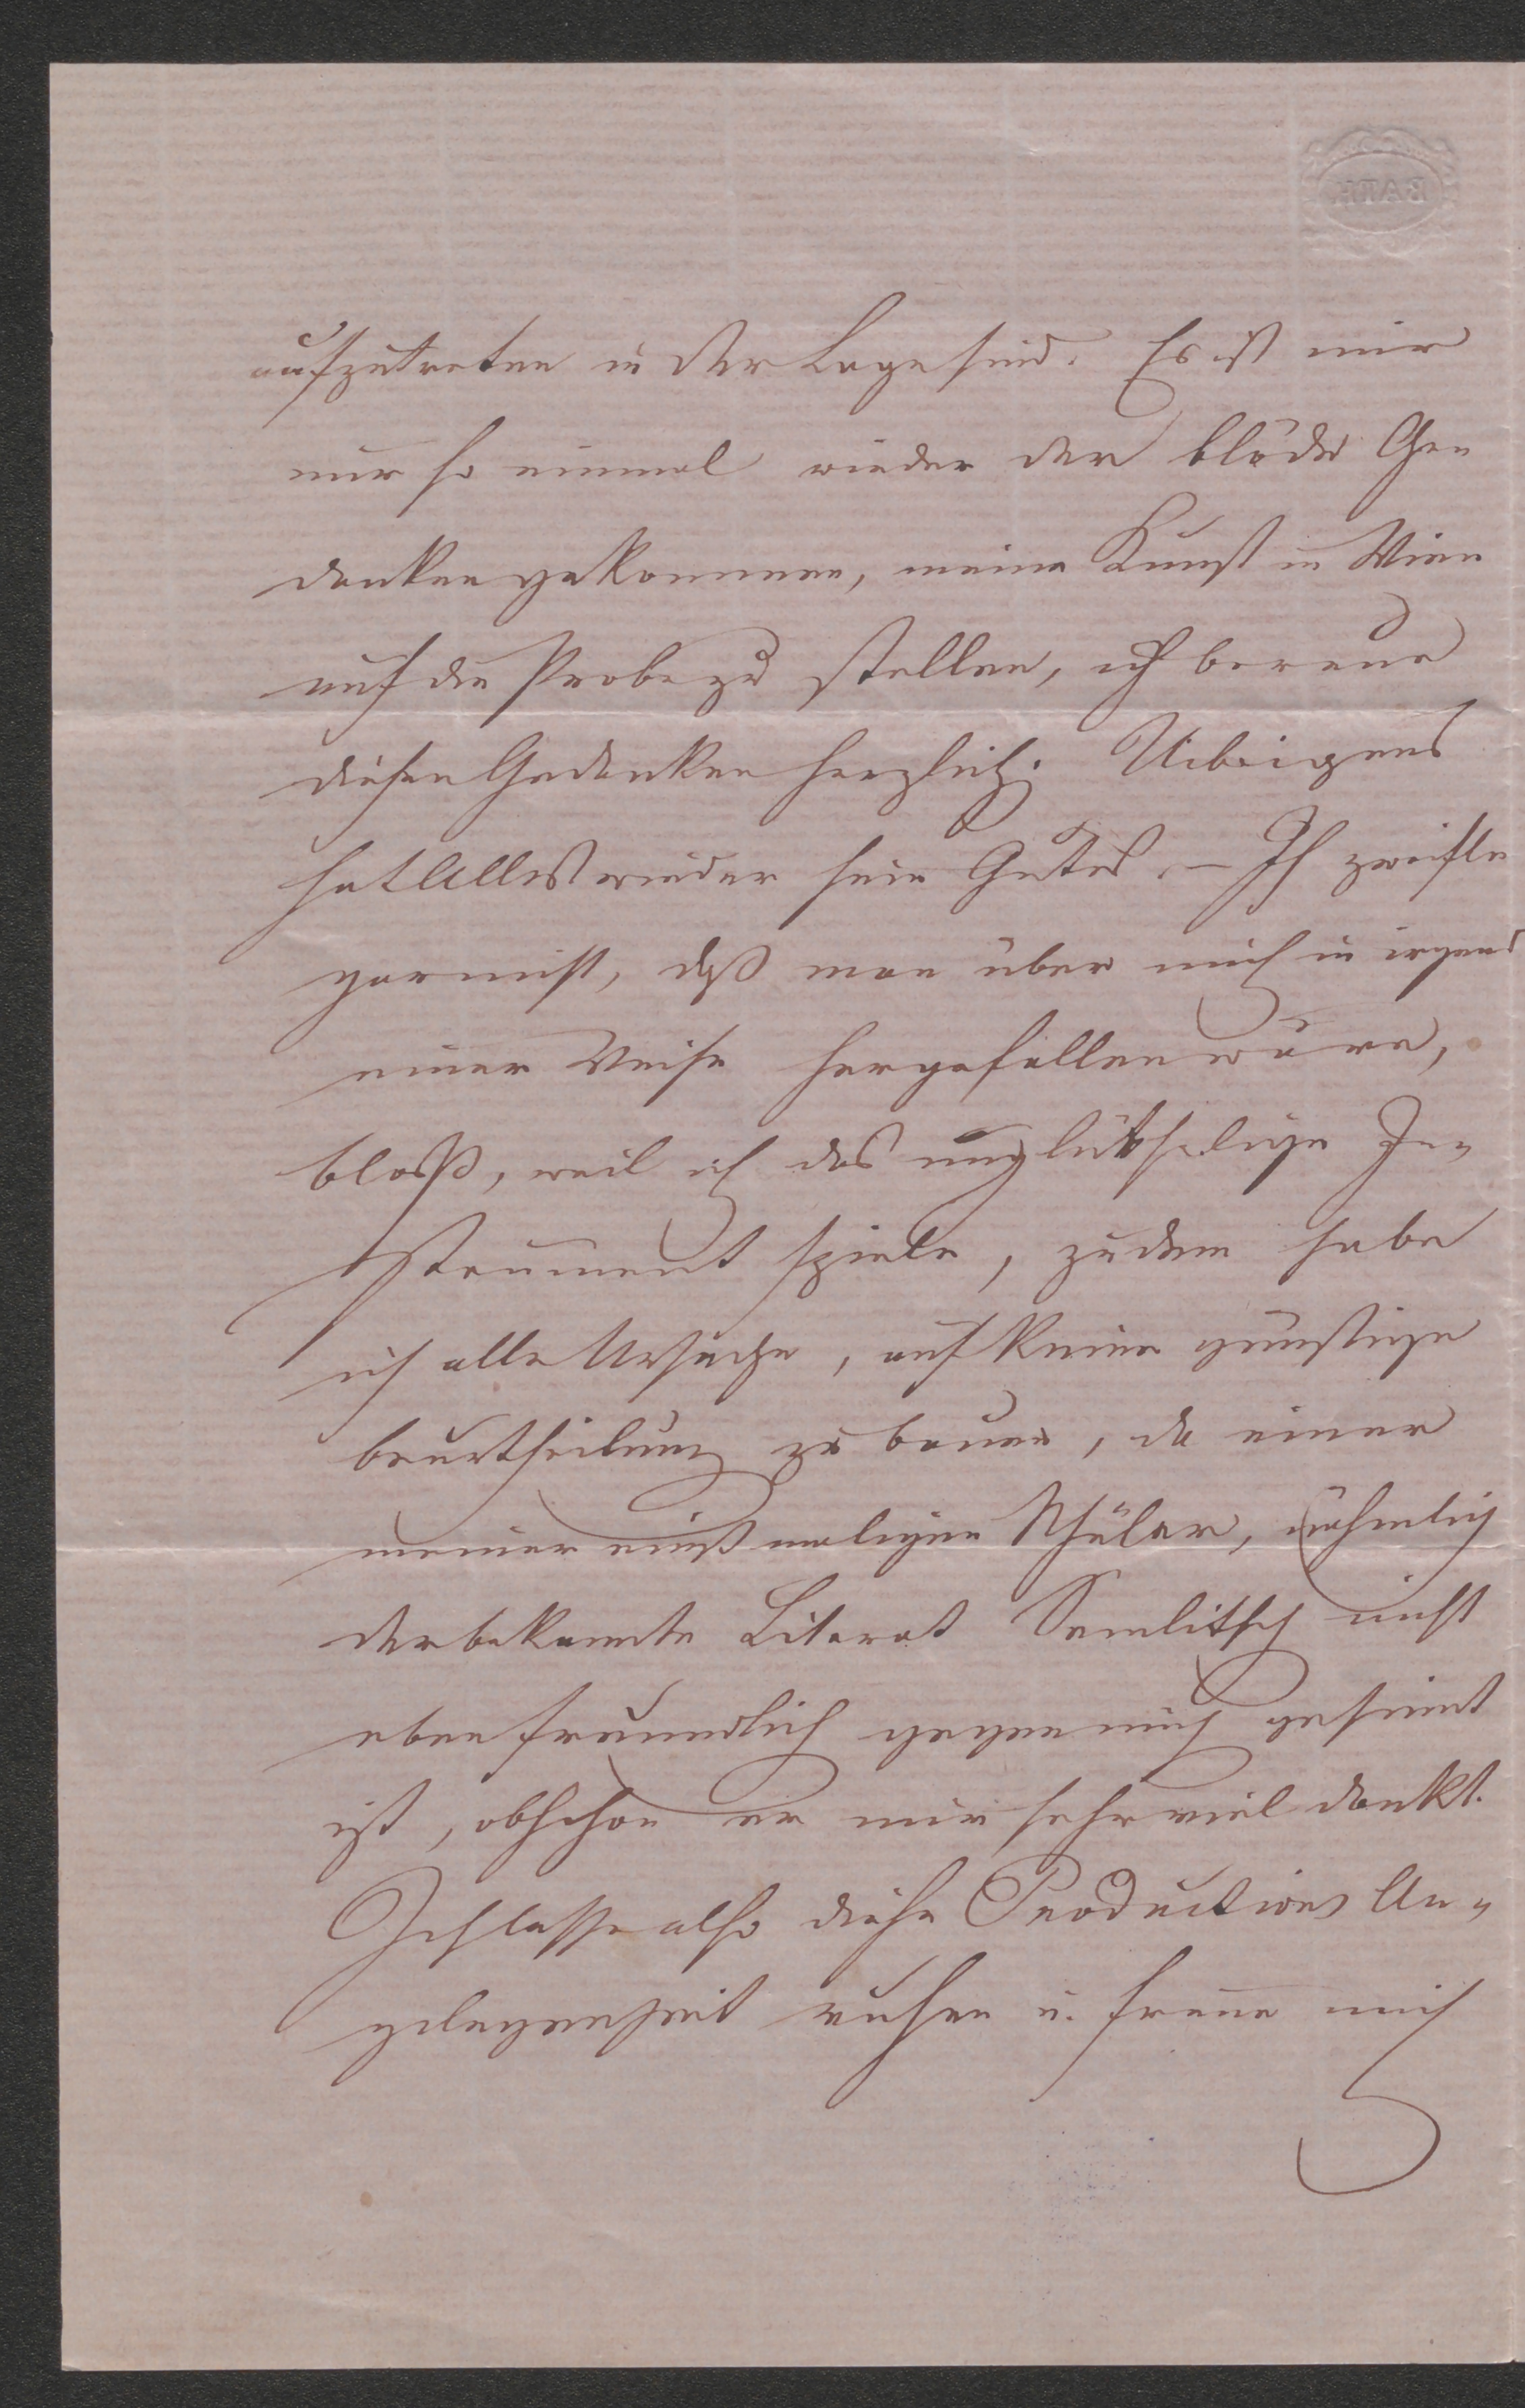 BATH
aufzutreten in der Lage sind. Es ist mir
nur so einmal wieder der blöde Ge=
danken gekommen, meine Kunst in Wien
auf die Probe zu stellen, ich bereue
diesen Gedanken herzlich. Uibrigens
hat Alles wieder sein Gutes. – Ich zweifle
gar nicht, daß man über mich in irgend
einer Weise hergefallen wäre,
bloß, weil ich das unglückselige In=
strument spiele, zudem habe
ich alle Ursache, auf keine günstige
Beurtheilung zu bauen, da einer
meiner einstmaligen Schüler, nähmlich
der bekannte Literat Semlitsch nicht
eben freundlich gegen mich gesinnt
ist, obschon er mir sehr viel dankt.
Ich lasse also diese Productions An=
gelegenheit ruhen u. freue mich